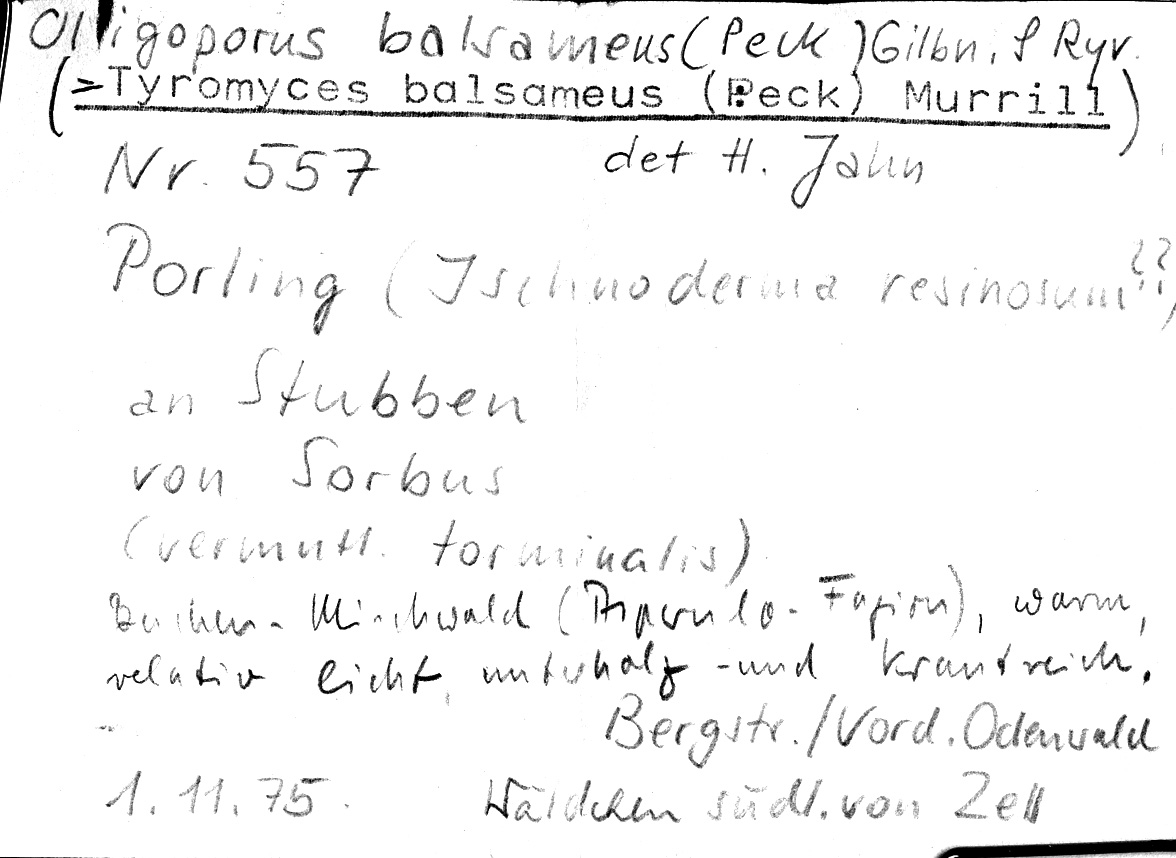 Olligoporus balsameus (Peck) Gilbn. & Ryv.
(=Tyromyces balsameus (Peck) Murrill)
Nr. 557 det H. Jahn
Porling (Ischnoderma resinosum ??)
an Stubben
von Sorbus
(vermutl. torminalis)
Buchen-Mischwald (Asperulo-Fagion), warm,
relativ licht, unterholz- und krautreich.
Bergstr./Vord. Odenwald
1.11.75. Wäldchen südl. von Zell